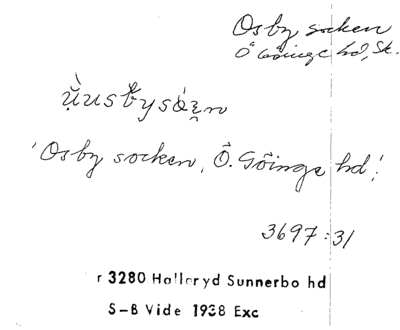 Osby socken
Ö Göinge hd, Sk.
'Osby socken, Ö. Göinge hd'.
3697:31
r 3280 Halleryd Sunnerbo hd
S-B Vide 1938 Exc